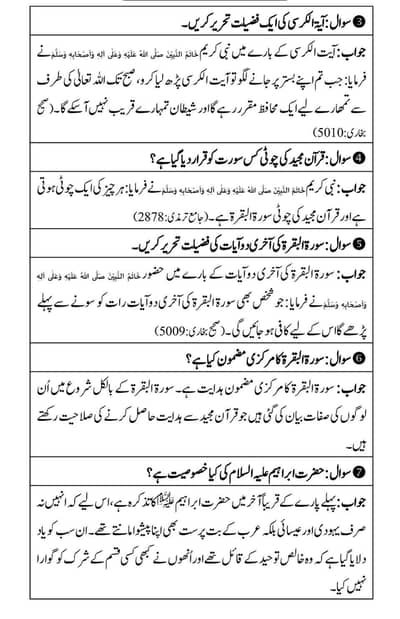 ❸ سوال: آیۃ الکرسی کی ایک فضیلت تحریر کریں۔
جواب: آیت الکرسی کے بارے میں نبی کریم خَاتَمُ النَّبِیّٖنَ صَلَّی اللہُ عَلَیْہِ وَعَلٰی اٰلِہٖ وَاَصْحَابِہٖ وَسَلَّمَ نے
فرمایا: جب تم اپنے بستر پر جانے لگو تو آیت الکرسی پڑھ لیا کرو، صبح تک اللہ تعالیٰ کی طرف
سے تمھارے لیے ایک محافظ مقرر رہے گا اور شیطان تمہارے قریب نہیں آسکے گا۔ (صحیح
بخاری:5010)
❹ سوال: قرآن مجید کی چوٹی کس سورت کو قرار دیا گیا ہے؟
جواب: نبی کریم خَاتَمُ النَّبِیّٖنَ صَلَّی اللہُ عَلَیْہِ وَعَلٰی اٰلِہٖ وَاَصْحَابِہٖ وَسَلَّمَ نے فرمایا: ہر چیز کی ایک چوٹی ہوتی
ہے اور قرآن مجید کی چوٹی سورۃ البقرۃ ہے۔ (جامع ترمذی:2878)
❺ سوال: سورۃ البقرۃ کی آخری دو آیات کی فضیلت تحریر کریں۔
جواب: سورۃ البقرۃ کی آخری دو آیات کے بارے میں حضور خَاتَمُ النَّبِیّٖنَ صَلَّی اللہُ عَلَیْہِ وَعَلٰی اٰلِہٖ
وَاَصْحَابِہٖ وَسَلَّمَ نے فرمایا: جو شخص بھی سورۃ البقرۃ کی آخری دو آیات رات کو سونے سے پہلے
پڑھے گا اس کے لیے کافی ہو جائیں گی۔ (صحیح بخاری:5009)
❻ سوال: سورۃ البقرۃ کا مرکزی مضمون کیا ہے؟
جواب: سورۃ البقرۃ کا مرکزی مضمون ہدایت ہے۔ سورۃ البقرۃ کے بالکل شروع میں اُن
لوگوں کی صفات بیان کی گئی ہیں جو قرآن مجید سے ہدایت حاصل کرنے کی صلاحیت رکھتے
ہیں۔
❼ سوال: حضرت ابراہیم علیہ السلام کی کیا خصوصیت ہے؟
جواب: پہلے پارے کے قریباً آخر میں حضرت ابراہیم علیہ السلام کا تذکرہ ہے، اس لیے کہ انہیں نہ
صرف یہودی اور عیسائی بلکہ عرب کے بت پرست بھی اپنا پیشوا مانتے تھے۔ ان سب کو یاد
دلایا گیا ہے کہ وہ خالص توحید کے قائل تھے اور اُنھوں نے کبھی کسی قسم کے شرک کو گوارا
نہیں کیا۔